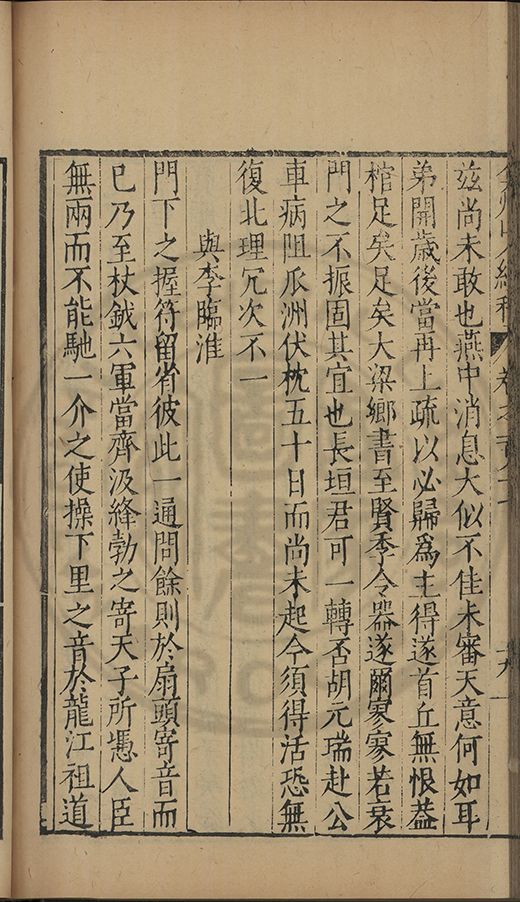 兹尚未敢也燕中消息大似不佳未審天意何如耳
弟開歲後當再上疏以必歸爲主得遂首丘無恨蓋
棺足矣足矣大梁鄉書至賢季令器遂爾寥寥若衰
門之不振固其宜也長垣君可一轉否胡元瑞赴公
車病阻瓜洲伏枕五十日而尚未起今須得活恐無
復北理冗次不一
與李臨淮
門下之握符留省彼此一通問餘則於扇頭寄音而
已乃至杖鉞六軍當齊汲絳勃之寄天子所慿人臣
無兩而不能馳一介之使操下里之音於龍江祖道